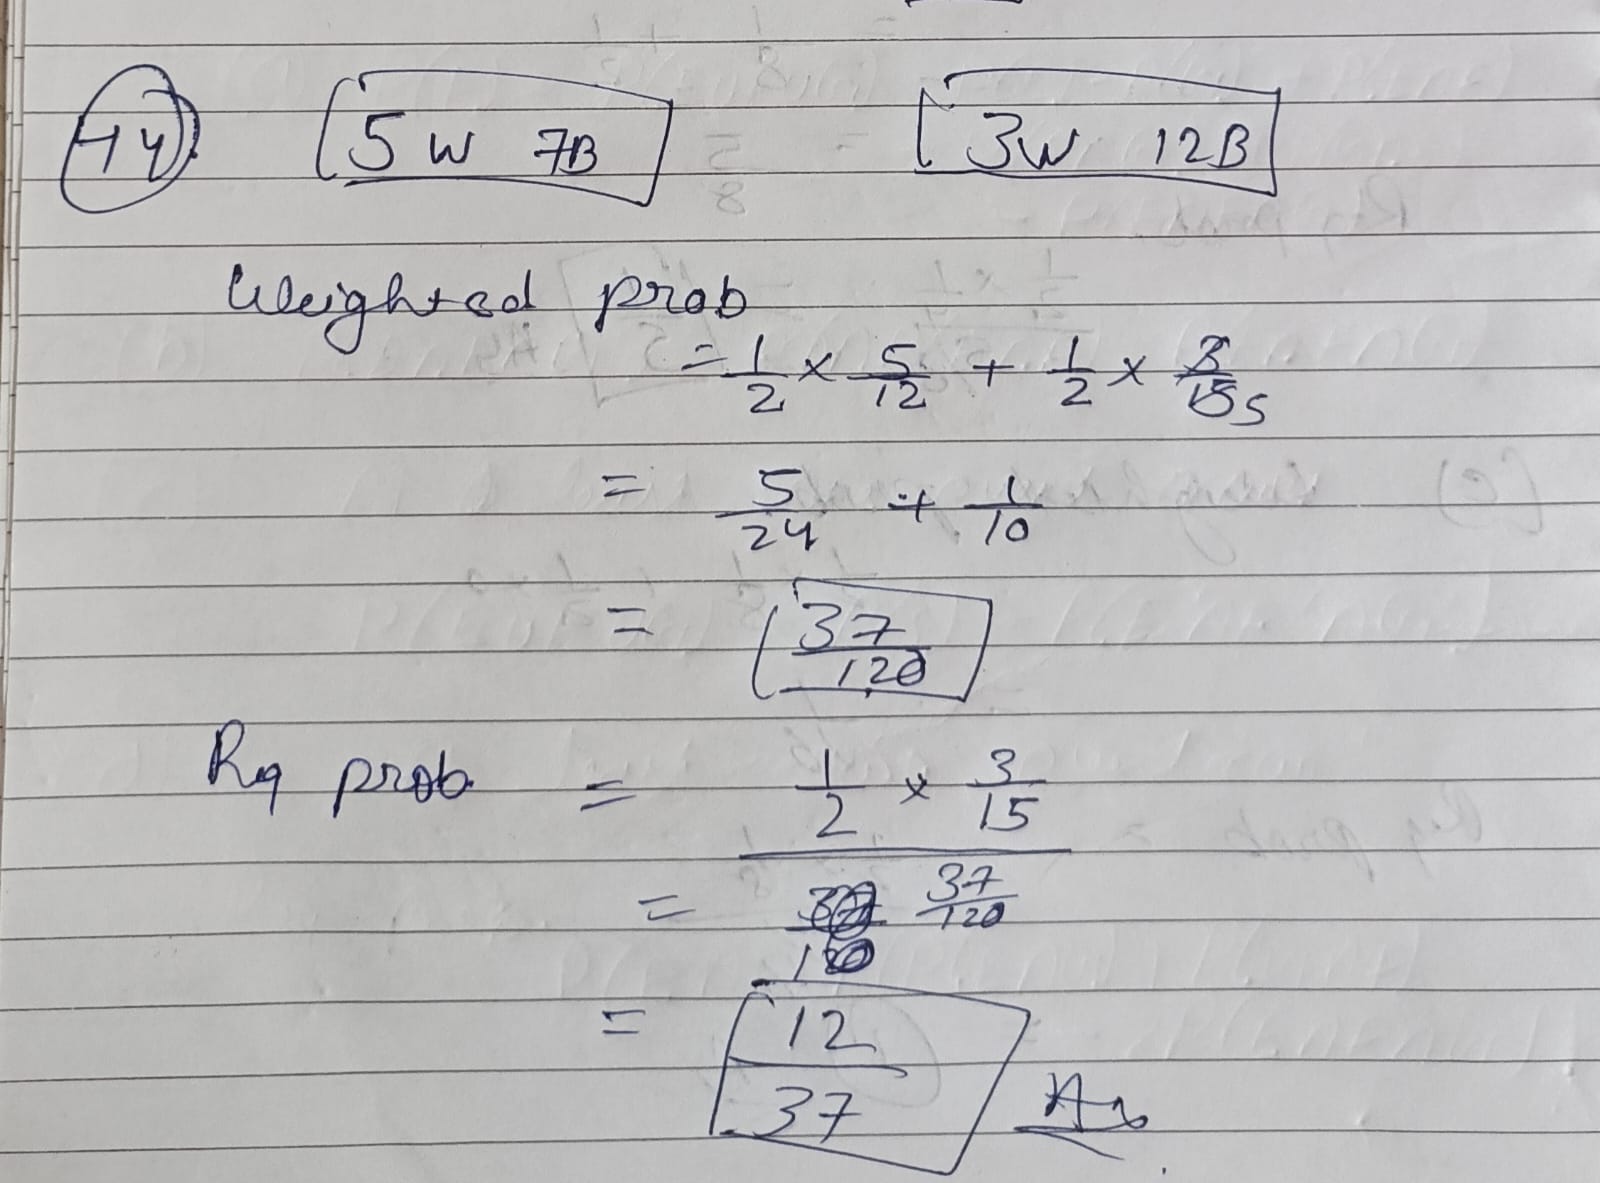 44) 5 W 7B 3W 12B
Weighted prob
= 1/2 × 5/12 + 1/2 × 3/15 5
= 5/24 + 1/10
= 37/120
Rq prob = 1/2 × 3/15
= 37/120
= 12/37 Ans